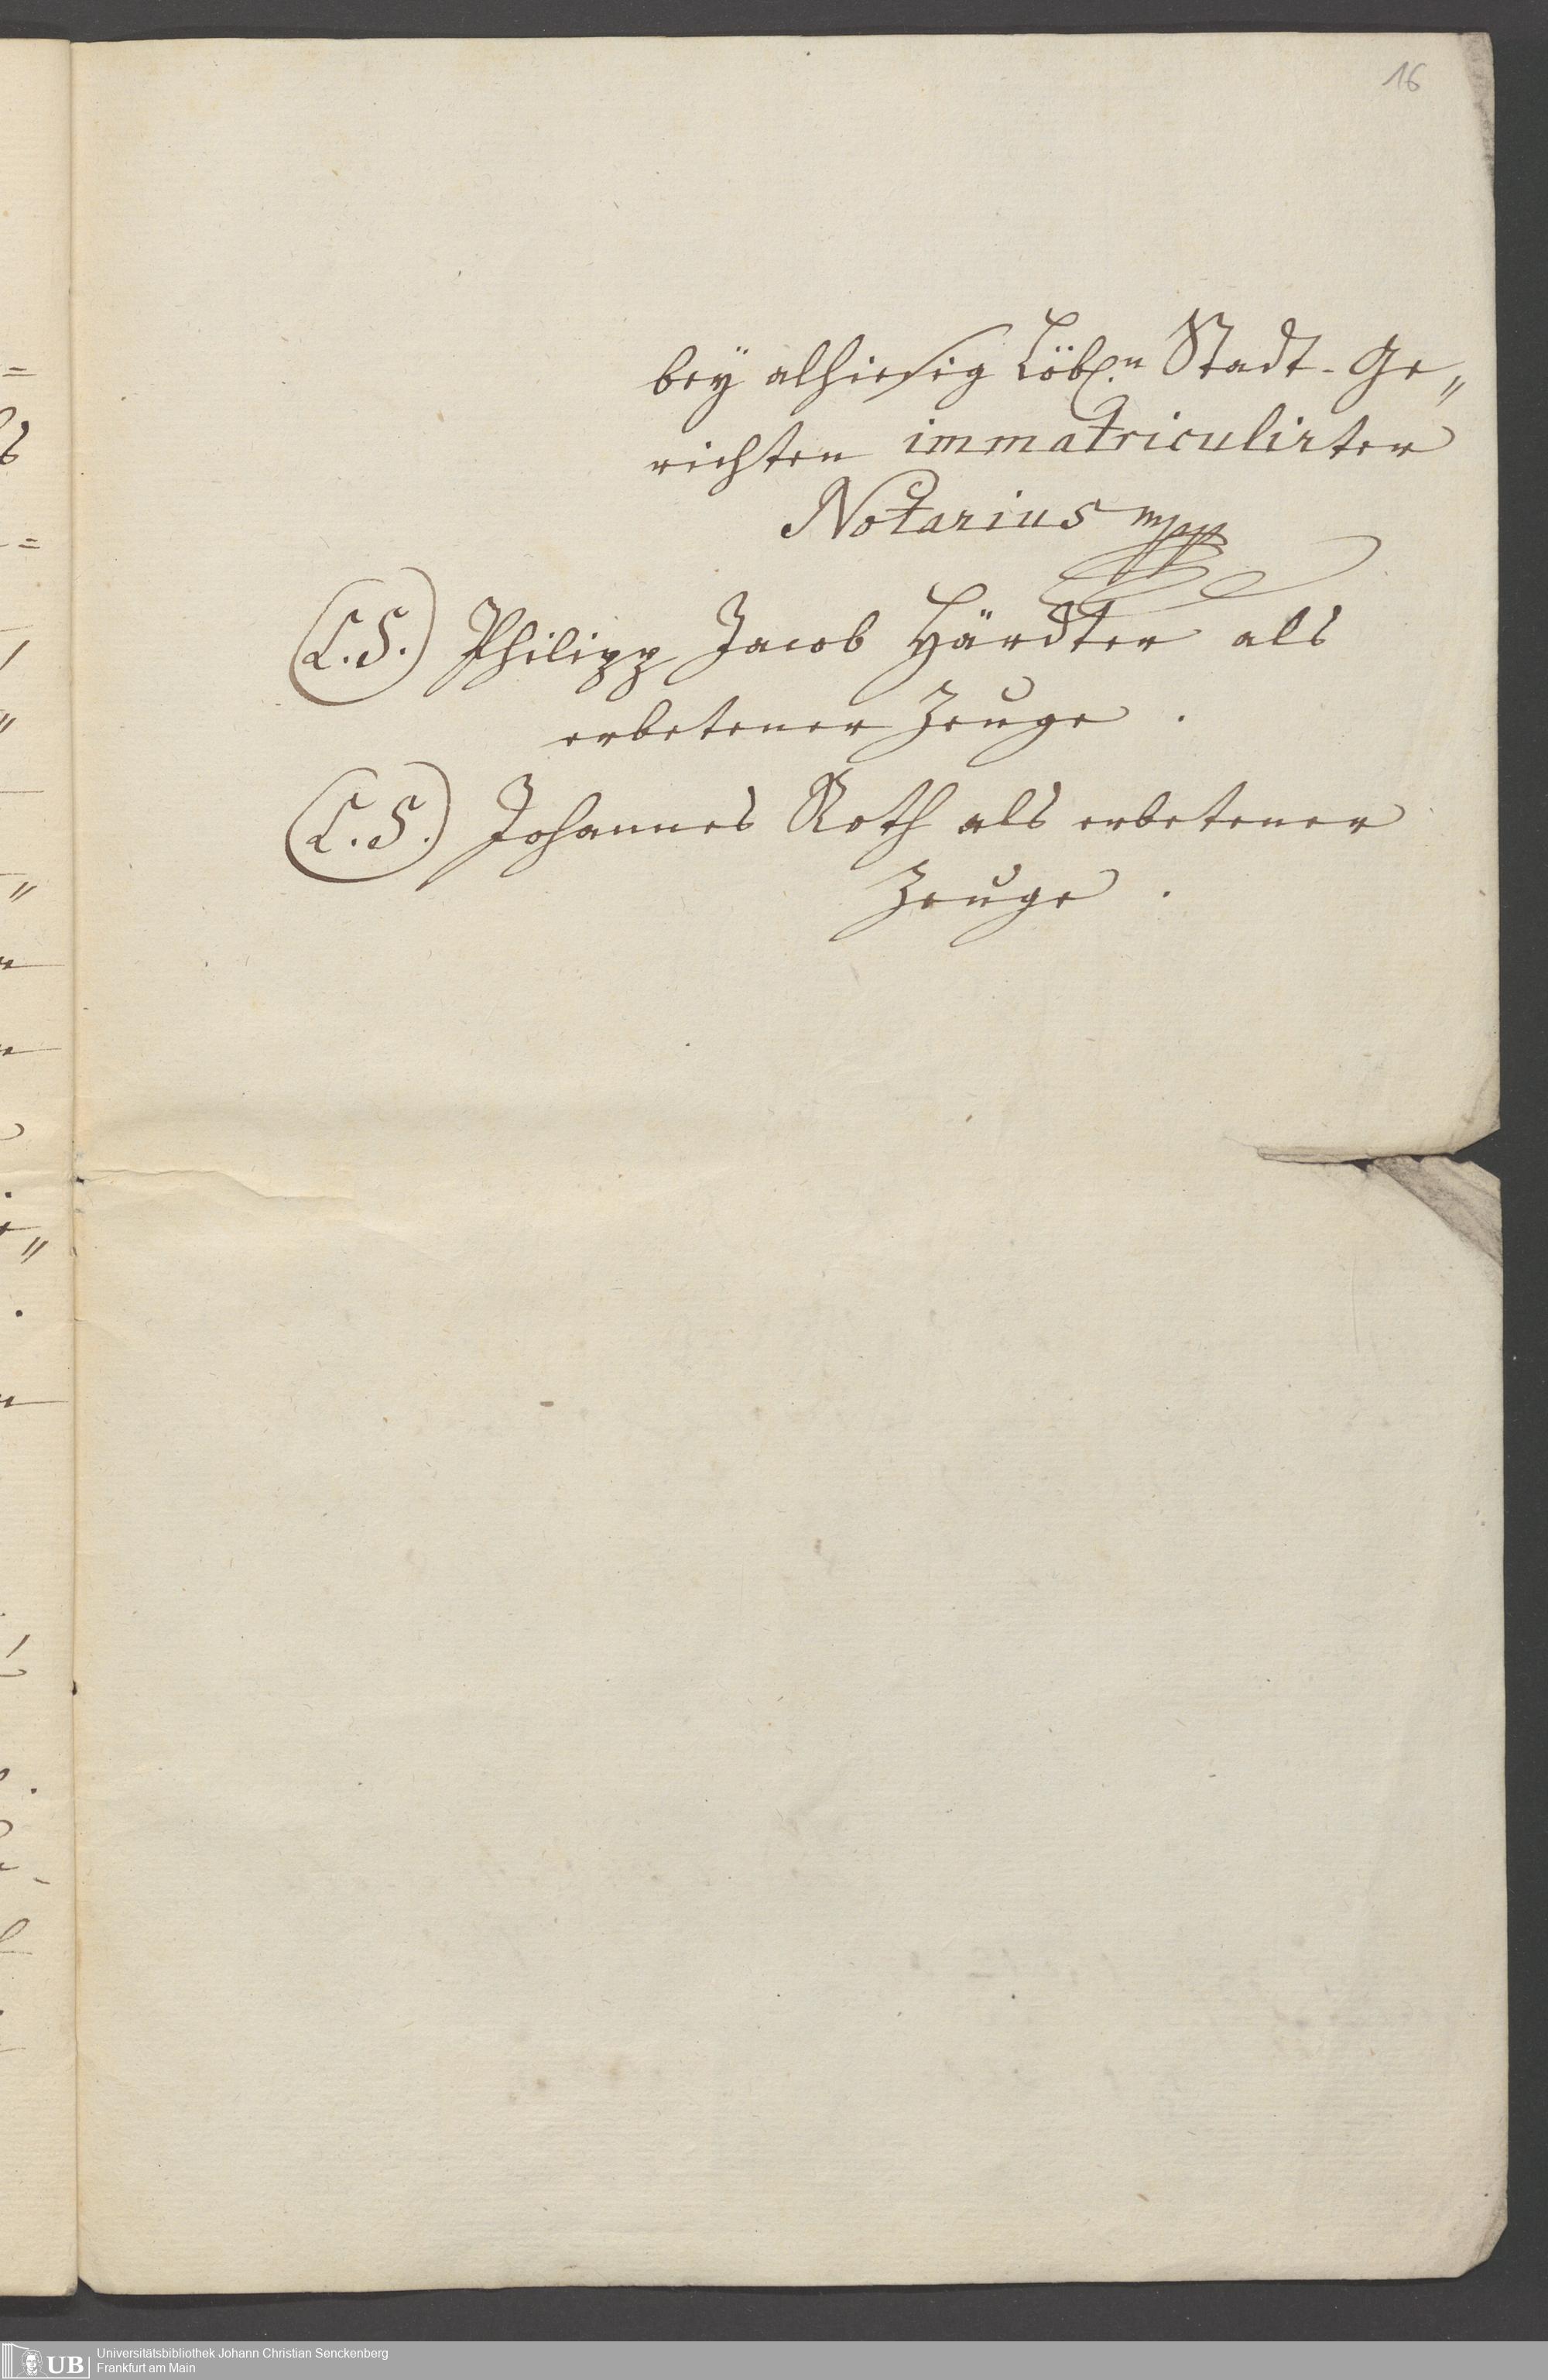 16
bey alhiesig Löbl.n Stadt-Ge„
richten immatriculirter
Notarius mpp
(L.S.) Philipp Jacob Härdter als
erbetener Zeuge.
(L.S.) Johannes Roth als erbetener
Zeuge.
UB
Universitätsbibliothek Johann Christian Senckenberg
Frankfurt am Main